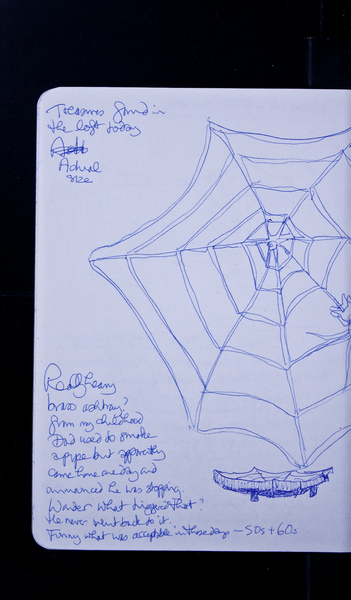 Treasures found in
the loft today
Actual
size
Really heavy
brass ashtray?
from my childhood
Dad used to smoke
a pipe but apparently
came home one day and
announced he was stopping.
Wonder what triggered that?
He never went back to it.
Funny what was acceptable in those days ~ 50s + 60s